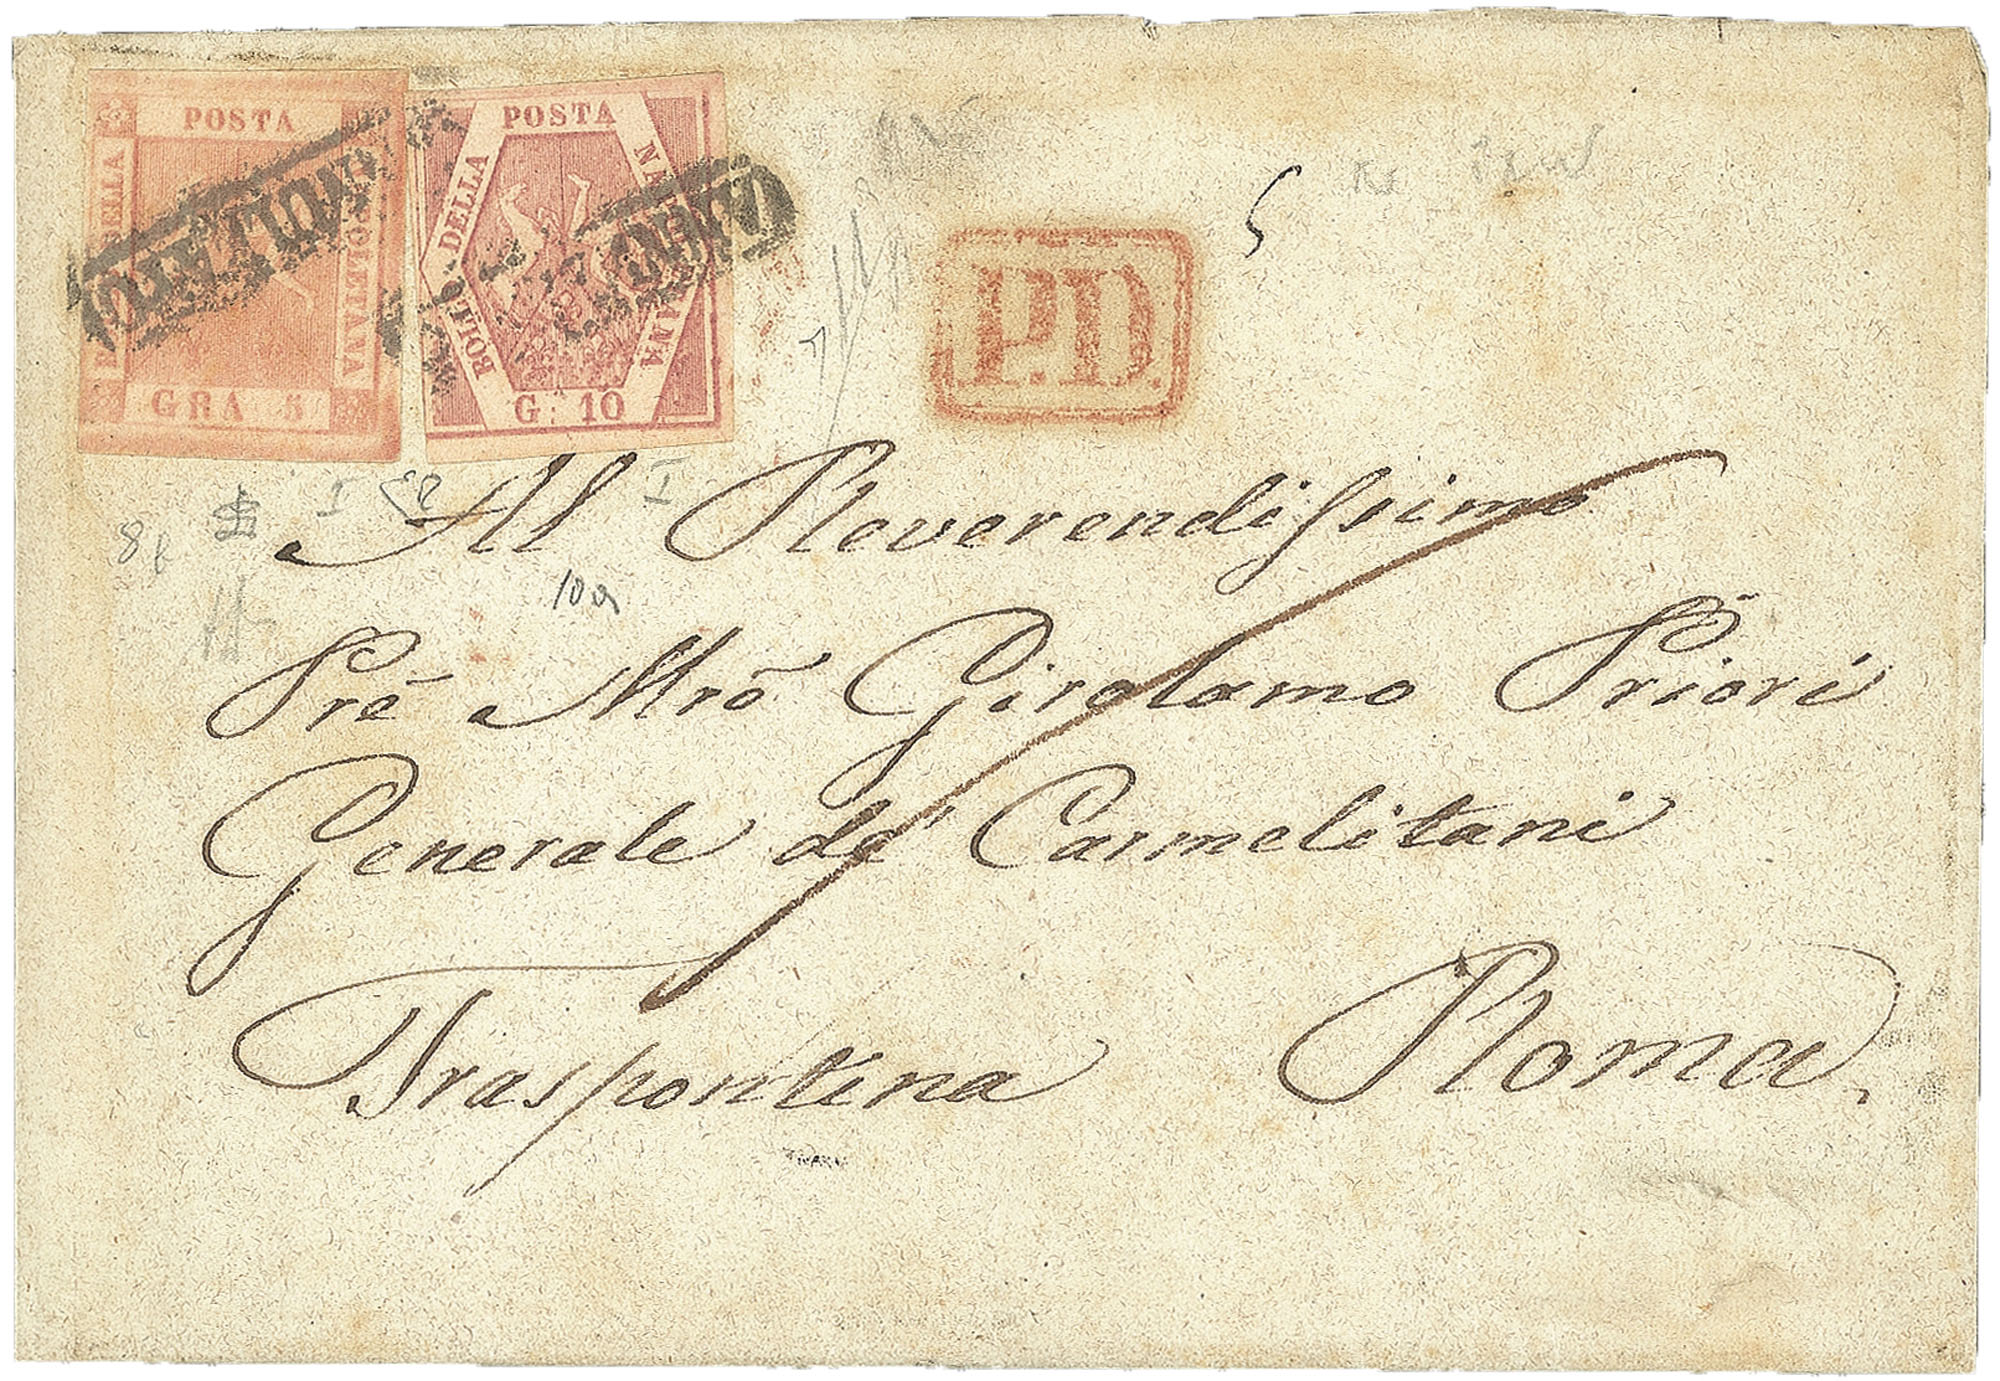 POSTA
BOLLO DELLA POSTA NAPOLETANA
GRA 5
G. 10
ANNULLATO
P.D.
5
8f
I
I
10a
Al Reverendissimo
Prē Mrō Girolamo Priori
Generale de' Carmelitani
Traspontina Roma